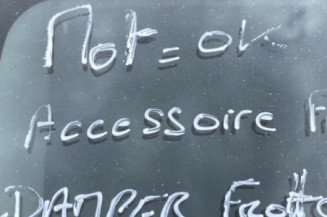 Mot = ok
Accessoire
DAMPER Frotte